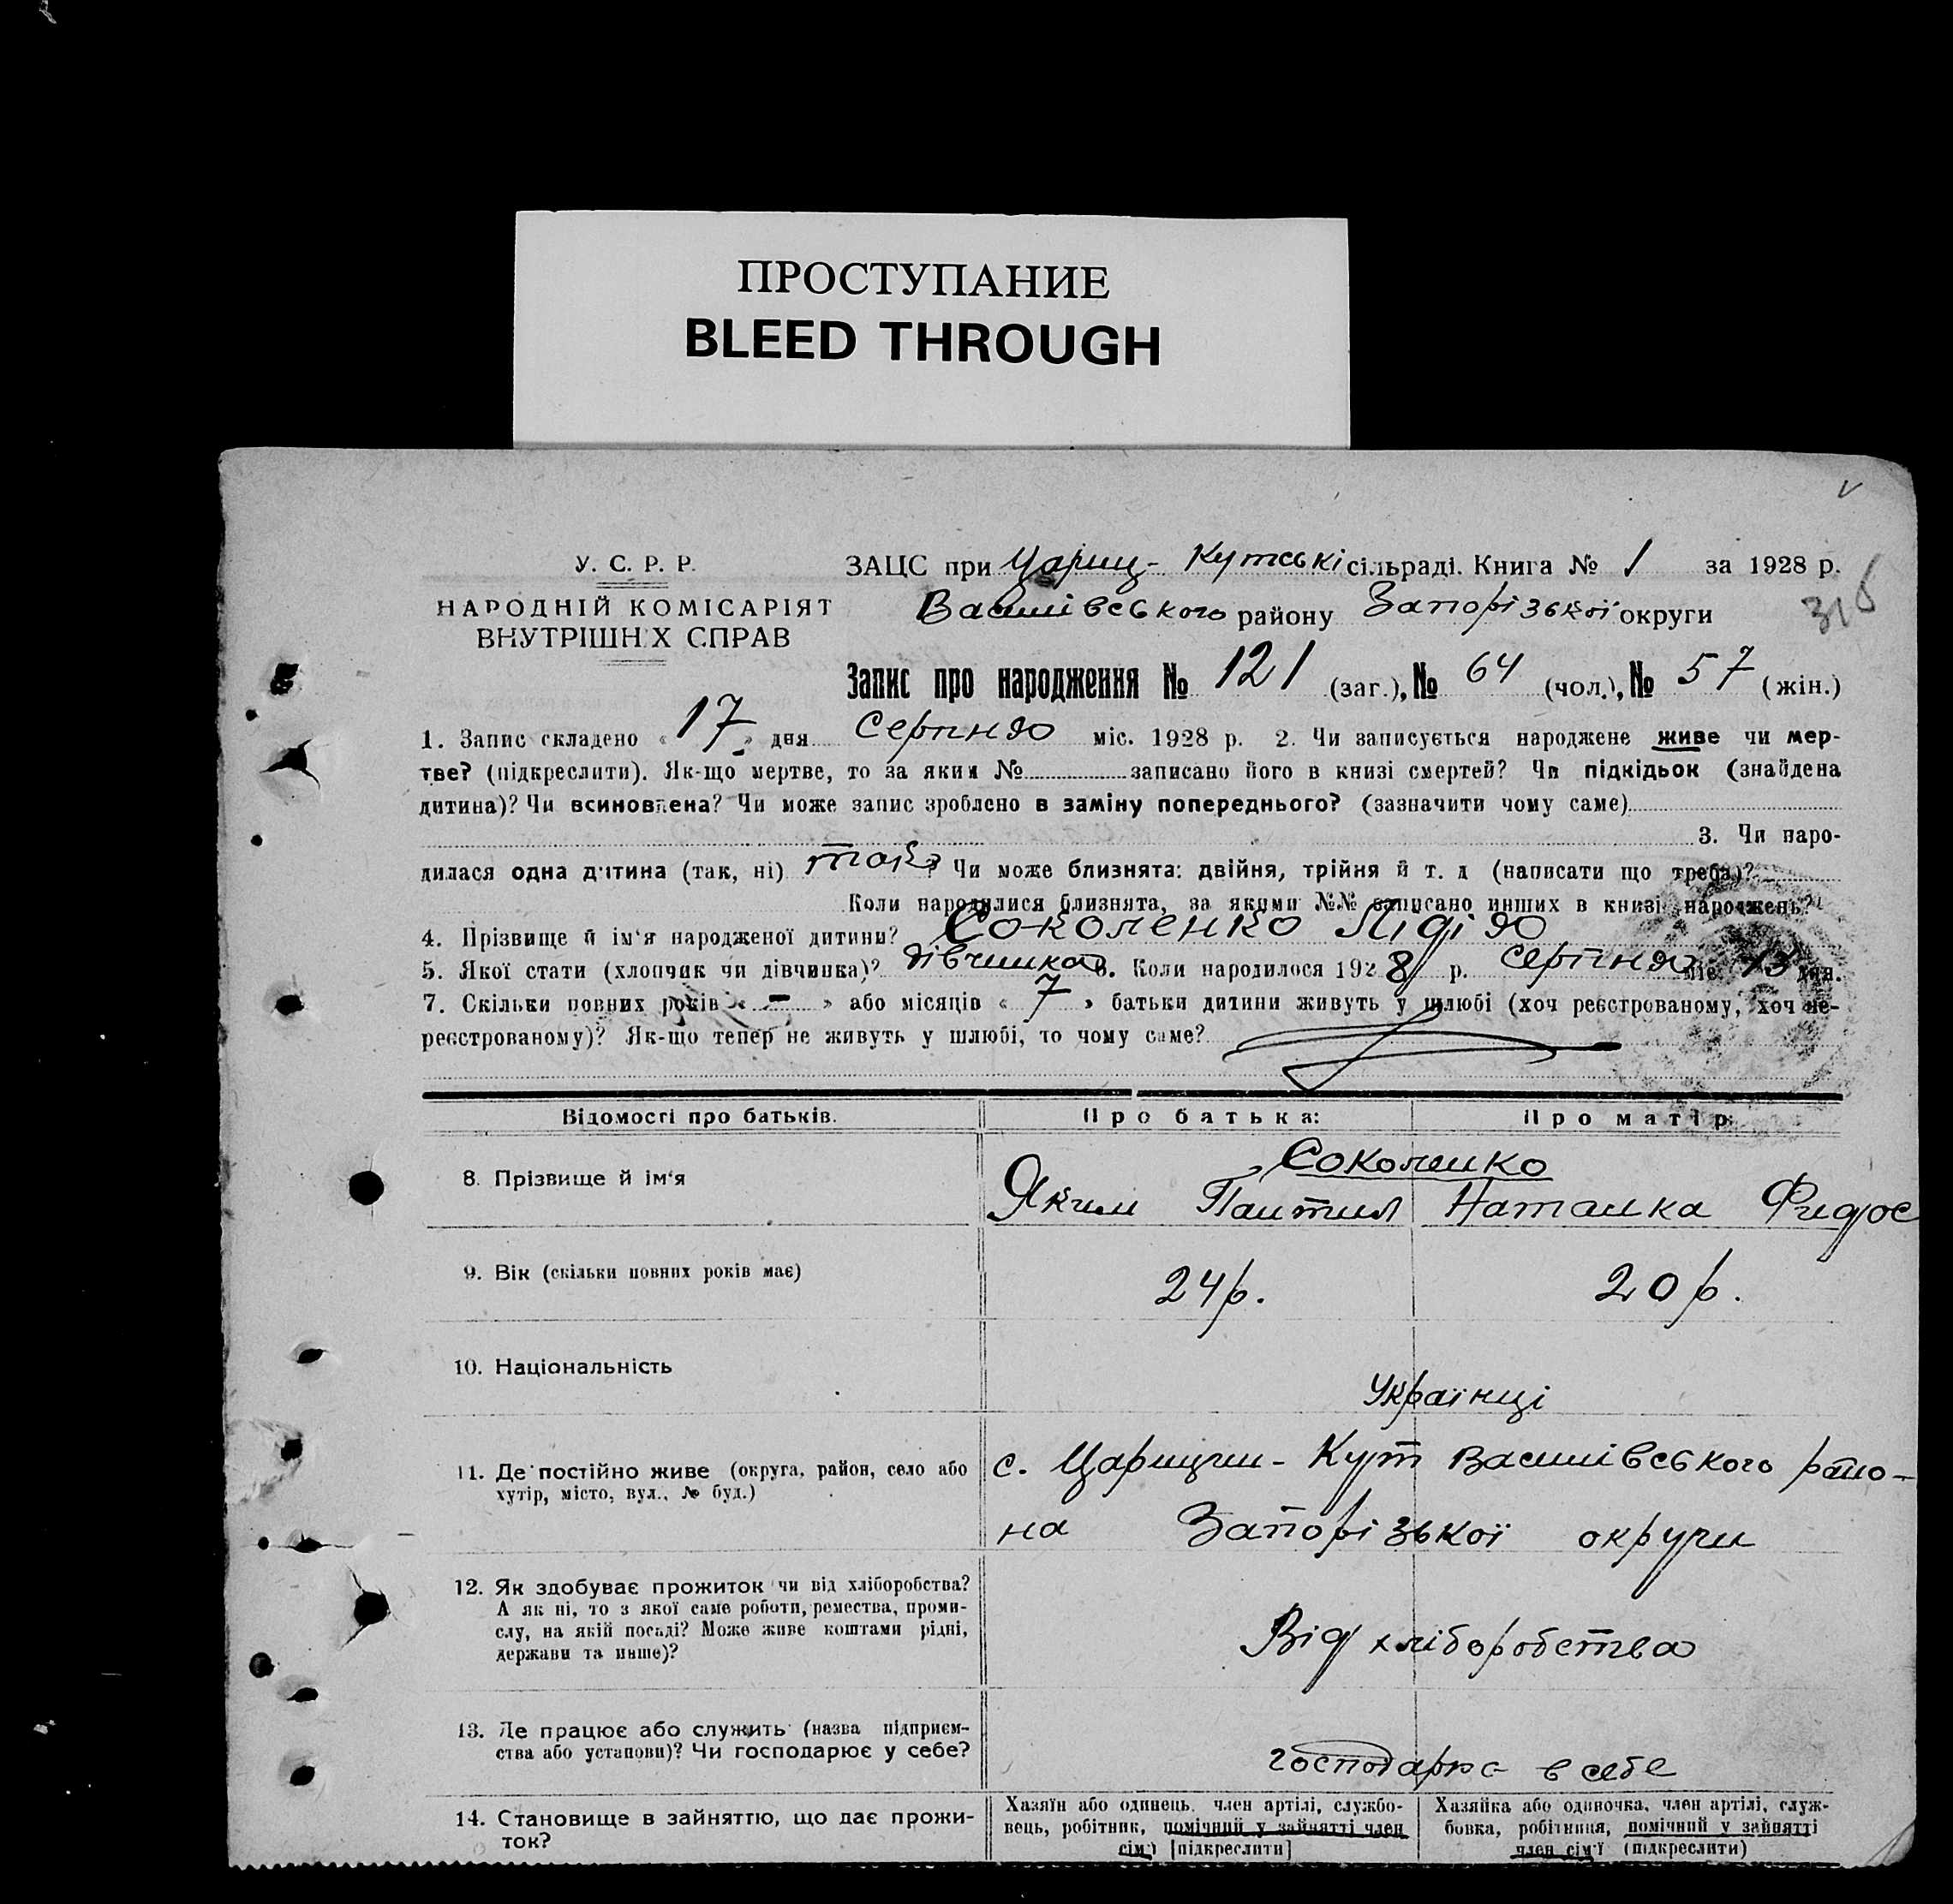 ПРОСТУПАНИЕ
BLEED THROUGH
У. С. Р. Р.
НАРОДНІЙ КОМІСАРІЯТ
ВНУТРІШНІХ СПРАВ
ЗАЦС при Цариц-Кутські сільраді. Книга № 1 за 1928 р.
Василівського району Запорізької округи
316
Запис про народження № 121 (заг.), № 64 (чол.), № 57 (жін.)
1. Запис складено « 17 » дня Серпня міс. 1928 р. 2. Чи записується народжене живе чи мер-
тве? (підкреслити). Як-що мертве, то за яким № записано його в книзі смертей? Чи підкідьок (знайдена
дитина)? Чи всиновлена? Чи може запис зроблено в заміну попереднього? (зазначити чому саме)
3. Чи наро-
дилася одна дитина (так, ні) так? Чи може близнята: двійня, трійня й т. д (написати що треба)?
Коли народилися близнята, за якими №№ записано инших в книзі народжень?
4. Прізвище й ім'я народженої дитини? Соколенко Лідія
5. Якої стати (хлопчик чи дівчинка)? дівчинка 6. Коли народилося 1928 р. Серпня міс. 15 дня.
7. Скільки повних років « - » або місяців « 7 » батьки дитини живуть у шлюбі (хоч реєстрованому, хоч не-
реєстрованому)? Як-що тепер не живуть у шлюбі, то чому саме?
Відомості про батьків.
Про батька:
Про матір:
8. Прізвище й ім'я
Соколенко
Яким Пантил
Наталка Фидос
9. Вік (скільки повних років має)
24 р.
20 р.
10. Національність
Українці
11. Де постійно живе (округа, район, село або
хутір, місто, вул., № буд.)
с. Царицин-Кут Василівського райо-
на Запорізької округи
12. Як здобуває прожиток чи від хліборобства?
А як ні, то з якої саме роботи, ремества, проми-
слу, на якій посаді? Може живе коштами рідні,
держави та инше)?
Від хліборобства
13. Де працює або служить (назва підприєм-
ства або установи)? Чи господарює у себе?
в себе
14. Становище в зайняттю, що дає прожи-
ток?
Хазяїн або одинець, член артілі, службо-
вець, робітник, помічний у зайнятті член
сім'ї [підкреслити]
Хазяйка або одиночка, член артілі, служ-
бовка, робітниця, помічний у зайнятті
член сім'ї (підкреслити)